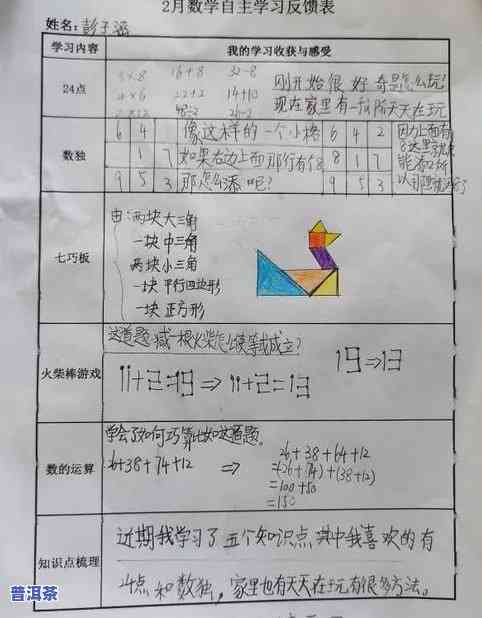 2月数学自主学习反馈表
姓名:
学习内容
我的学习收获与感受
24点
3×8 16+8 32-8
4×6 22+2 14+10
刚开始很好奇是怎么玩!
现在家里有一段所天天在玩
数独
6 4 像这样的一个小格 6 4 2 因为上面有
1 7 如果右边上面那行有个8 8 1 7
9 5 3 那怎么添呢? 9 5 3
七巧板
由:两块大三角
一块中三角
两块小三角
一块平行四边形
一块正方形
火柴棒游戏
这道题减一根火柴怎么使等式成立?
11+2=19 ⇒ 11+2=13
19⇒13
数的运算
学会了如何巧算比如这道题。
26+38+74+12 ⇒
26+38+64+12
=(26+74)+(38+12)
=100+50
=150
知识点梳理
近期我学习了五个知识点,其中我喜欢的有
24点和数独,家里也有天天在玩有很多方法。
普洱茶